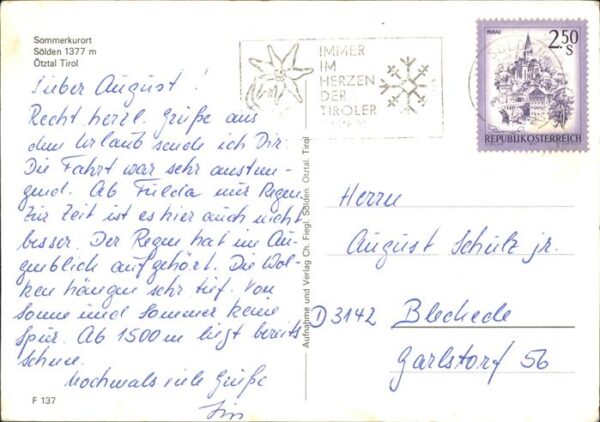 Sommerkurort
Sölden 1377 m
Ötztal Tirol
Lieber August!
Recht herzl. Grüße aus
dem Urlaub sende ich Dir.
Die Fahrt war sehr anstren-
gend. Ab Fulda nur Regen.
Zur Zeit ist es hier auch nicht
besser. Der Regen hat im Au-
genblick aufgehört. Die Wol-
ken hängen sehr tief. Von
Sonne und Sommer keine
Spur. Ab 1500 m liegt bereits
Schnee.
Nochmals viele Grüße
F 137
Aufnahme und Verlag Ch. Fiegl, Sölden, Ötztal, Tirol
IMMER
IM
HERZEN
DER
TIROLER
MURAU
2.50
S
REPUBLIK ÖSTERREICH
Herrn
August Schulz jr.
D 3142 Bleckede
Garlstorf 56